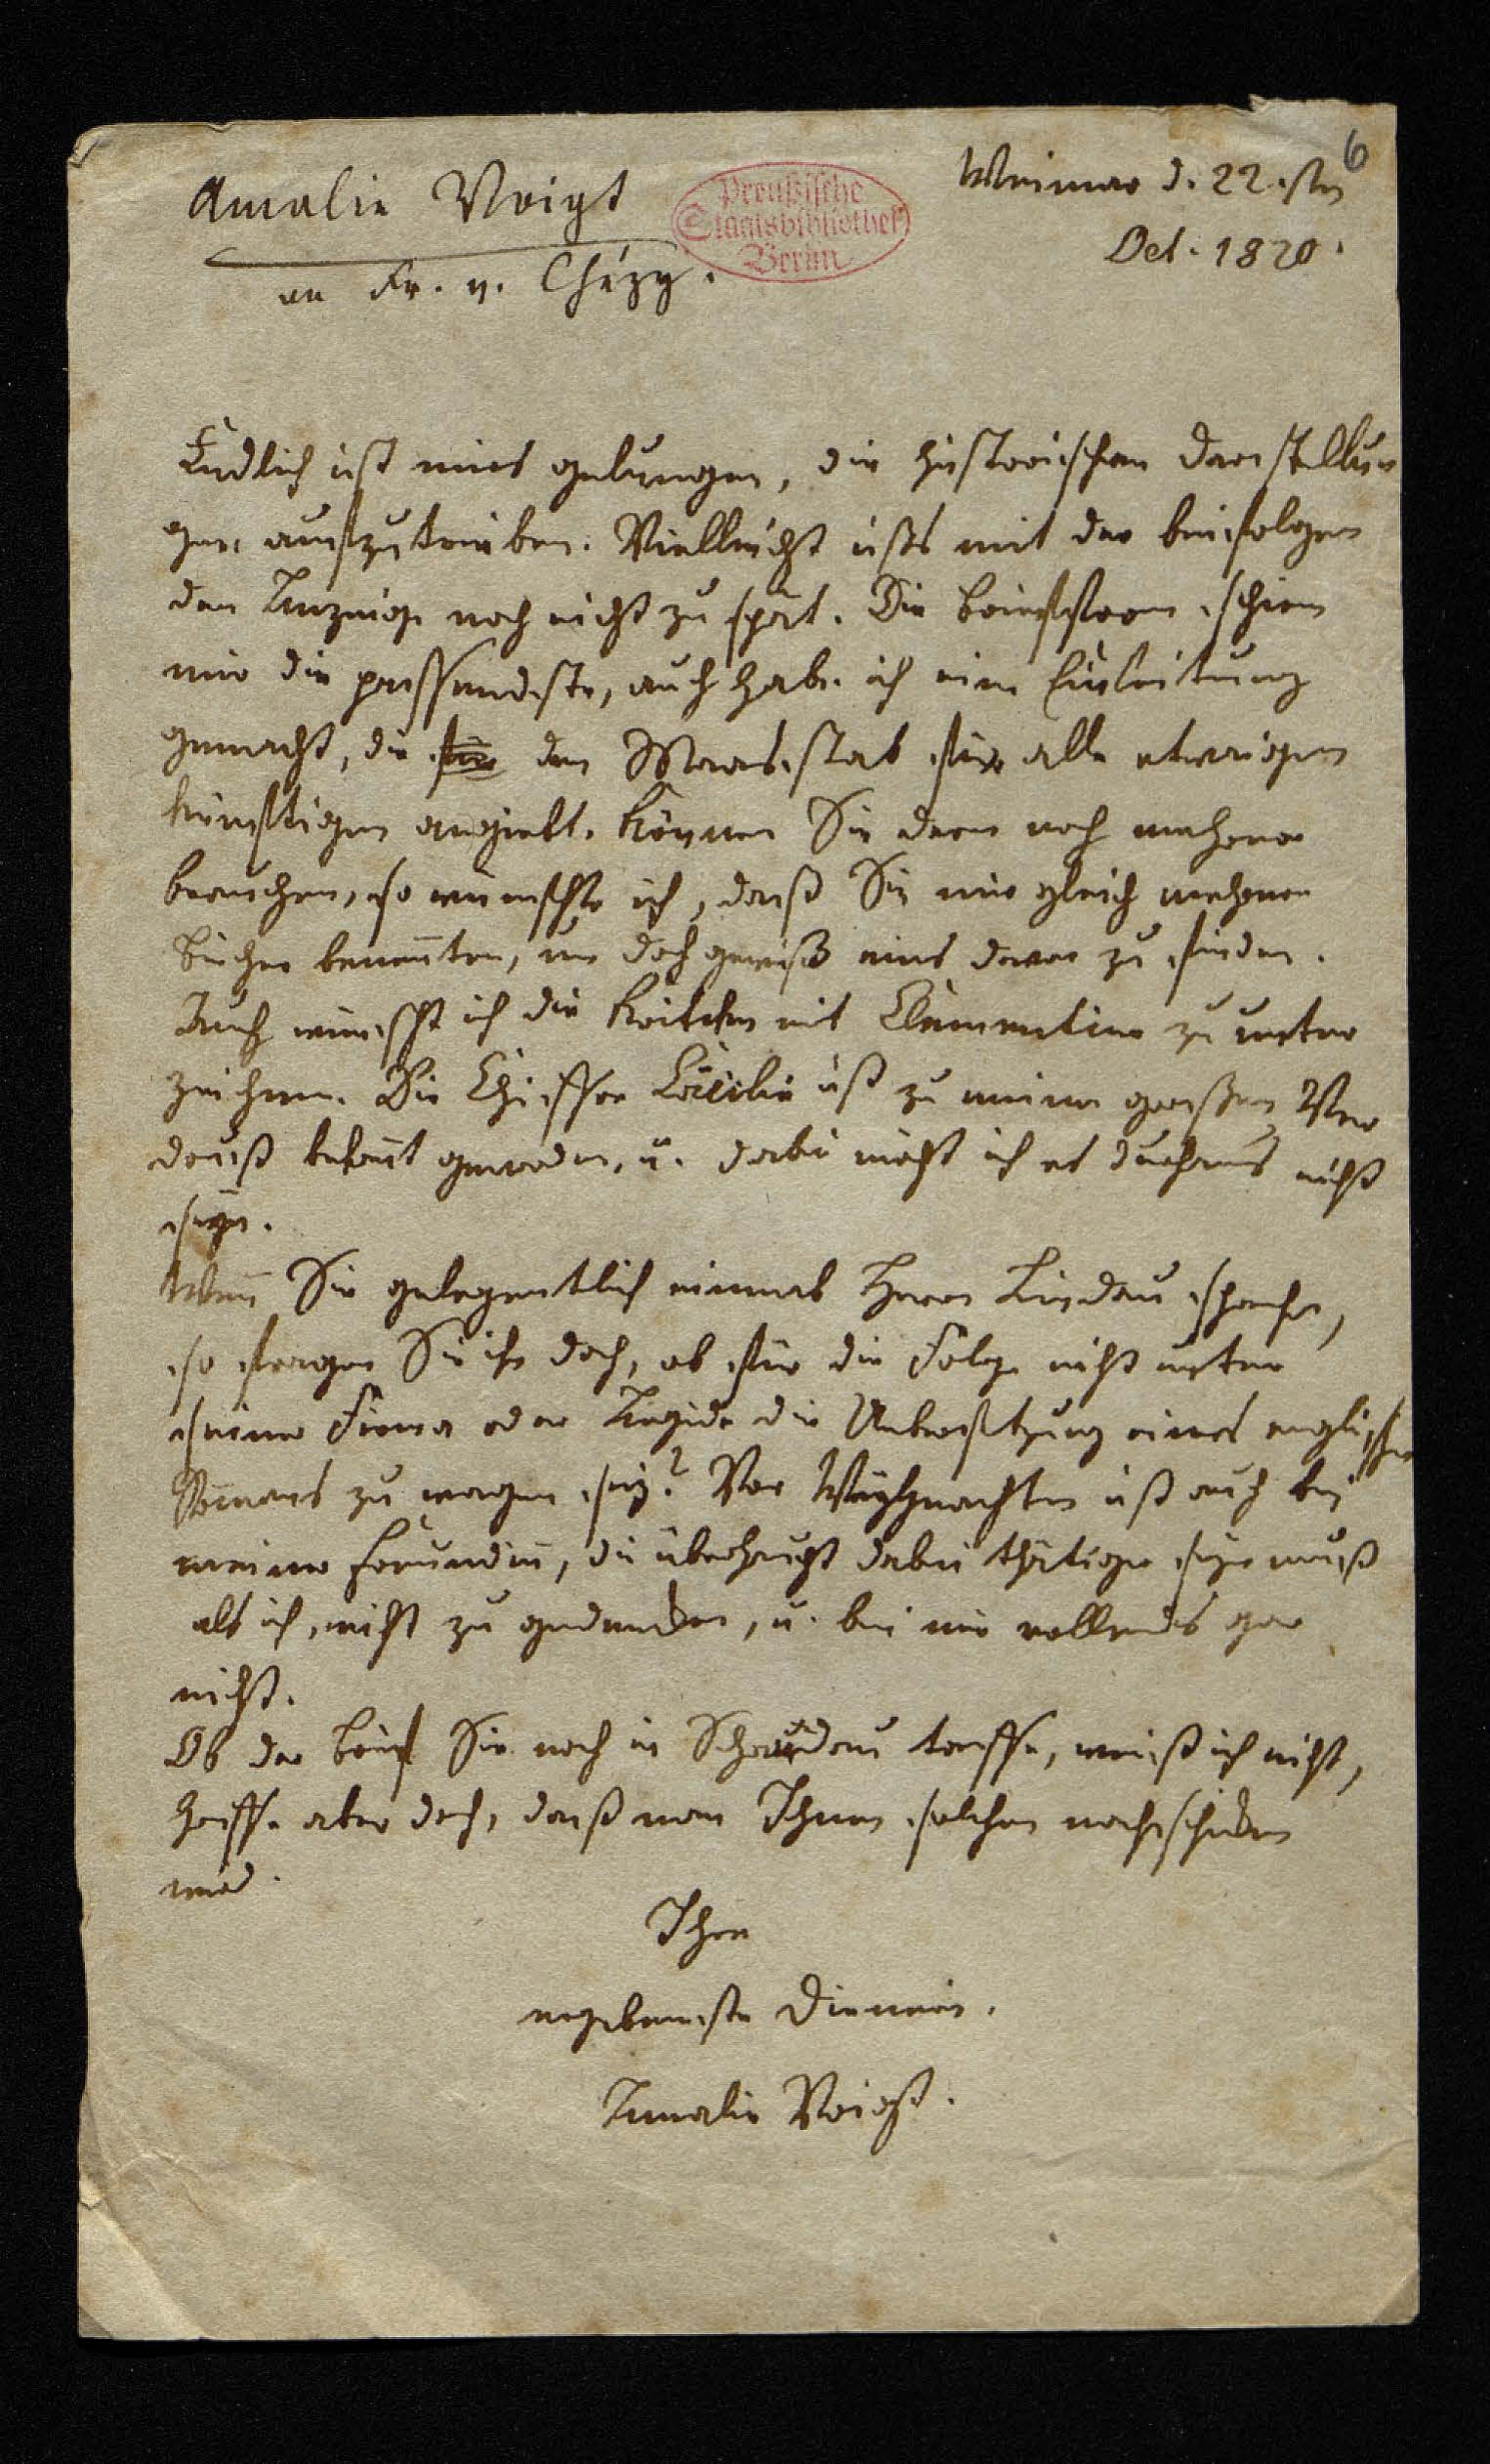 6
Weimar d. 22sten
Oct. 1820.
Amalie Voigt
an Fr. v. Chézy.
Preußische
Staatsbibliothek
Berlin
Endlich ist mirs gelungen, die historischen Darstellun
gen aufzutreiben. Vielleicht ists mit der beifolgen
den Anzeige noch nicht zu spät. Die Briefform schien
mir die passendste, auch habe ich eine Einleitung
gemacht, die für den Maasstab für alle etwaigen
künftigen angiebt. Können Sie denn noch mehrere
brauchen, so wünschte ich, daß Sie mir gleich mehrere
Bücher benennten, um doch gewiß eins davon zu finden.
Auch wünscht ich die Kritiken mit Clementine zu unter
zeichnen. Die Chiffre Cäcilie ist zu meinem großen Ver
druß bekannt geworden, u. dabei möcht ich es durchaus nicht
seyn.
Wenn Sie gelegentlich einmal Herrn Lindau sprechen,
so fragen Sie ihn doch, ob für die Folge nicht unter
seiner Firma oder Aegide die Uebersetzung eines englischen
Romans zu wagen sey? Vor Weyhnachten ist auch bei
meiner Freundin, die überhaupt dabei thätiger seyn muß
als ich, nicht zu gedenken, u. bei mir vollends gar
nicht.
Ob der Brief Sie noch in Schandau treffe, weiß ich nicht,
hoffe aber doch, daß man Ihnen solchen nachschicken
wird.
Ihre
ergebenste Dienerin.
Amalie Voigt.